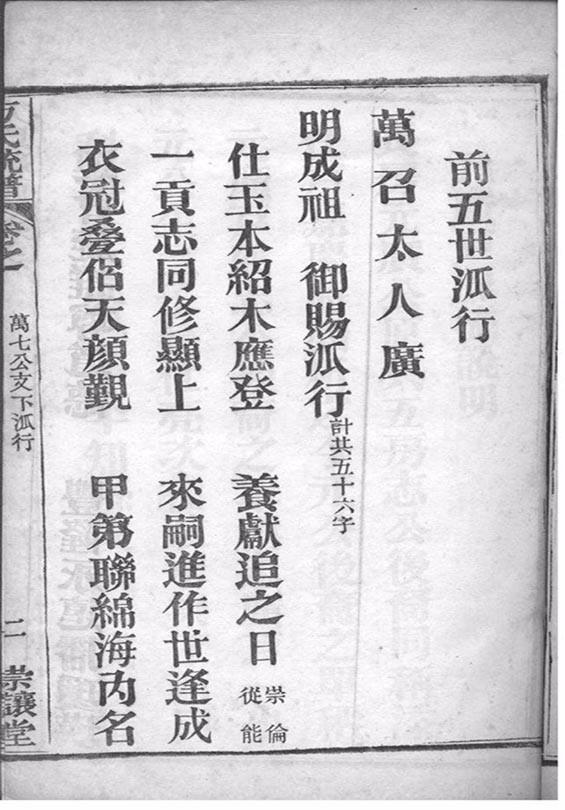 前五世派行
萬召太人廣
明成祖 御賜派行計共五十六字
仕玉本紹木應登 養獻追之日 崇倫 從能
一貢志同修顯上 來嗣進作世逢成
衣冠疊侶天顏覲 甲第聯綿海內名
方氏統譜 卷之
萬七公支下派行
二 崇讓堂